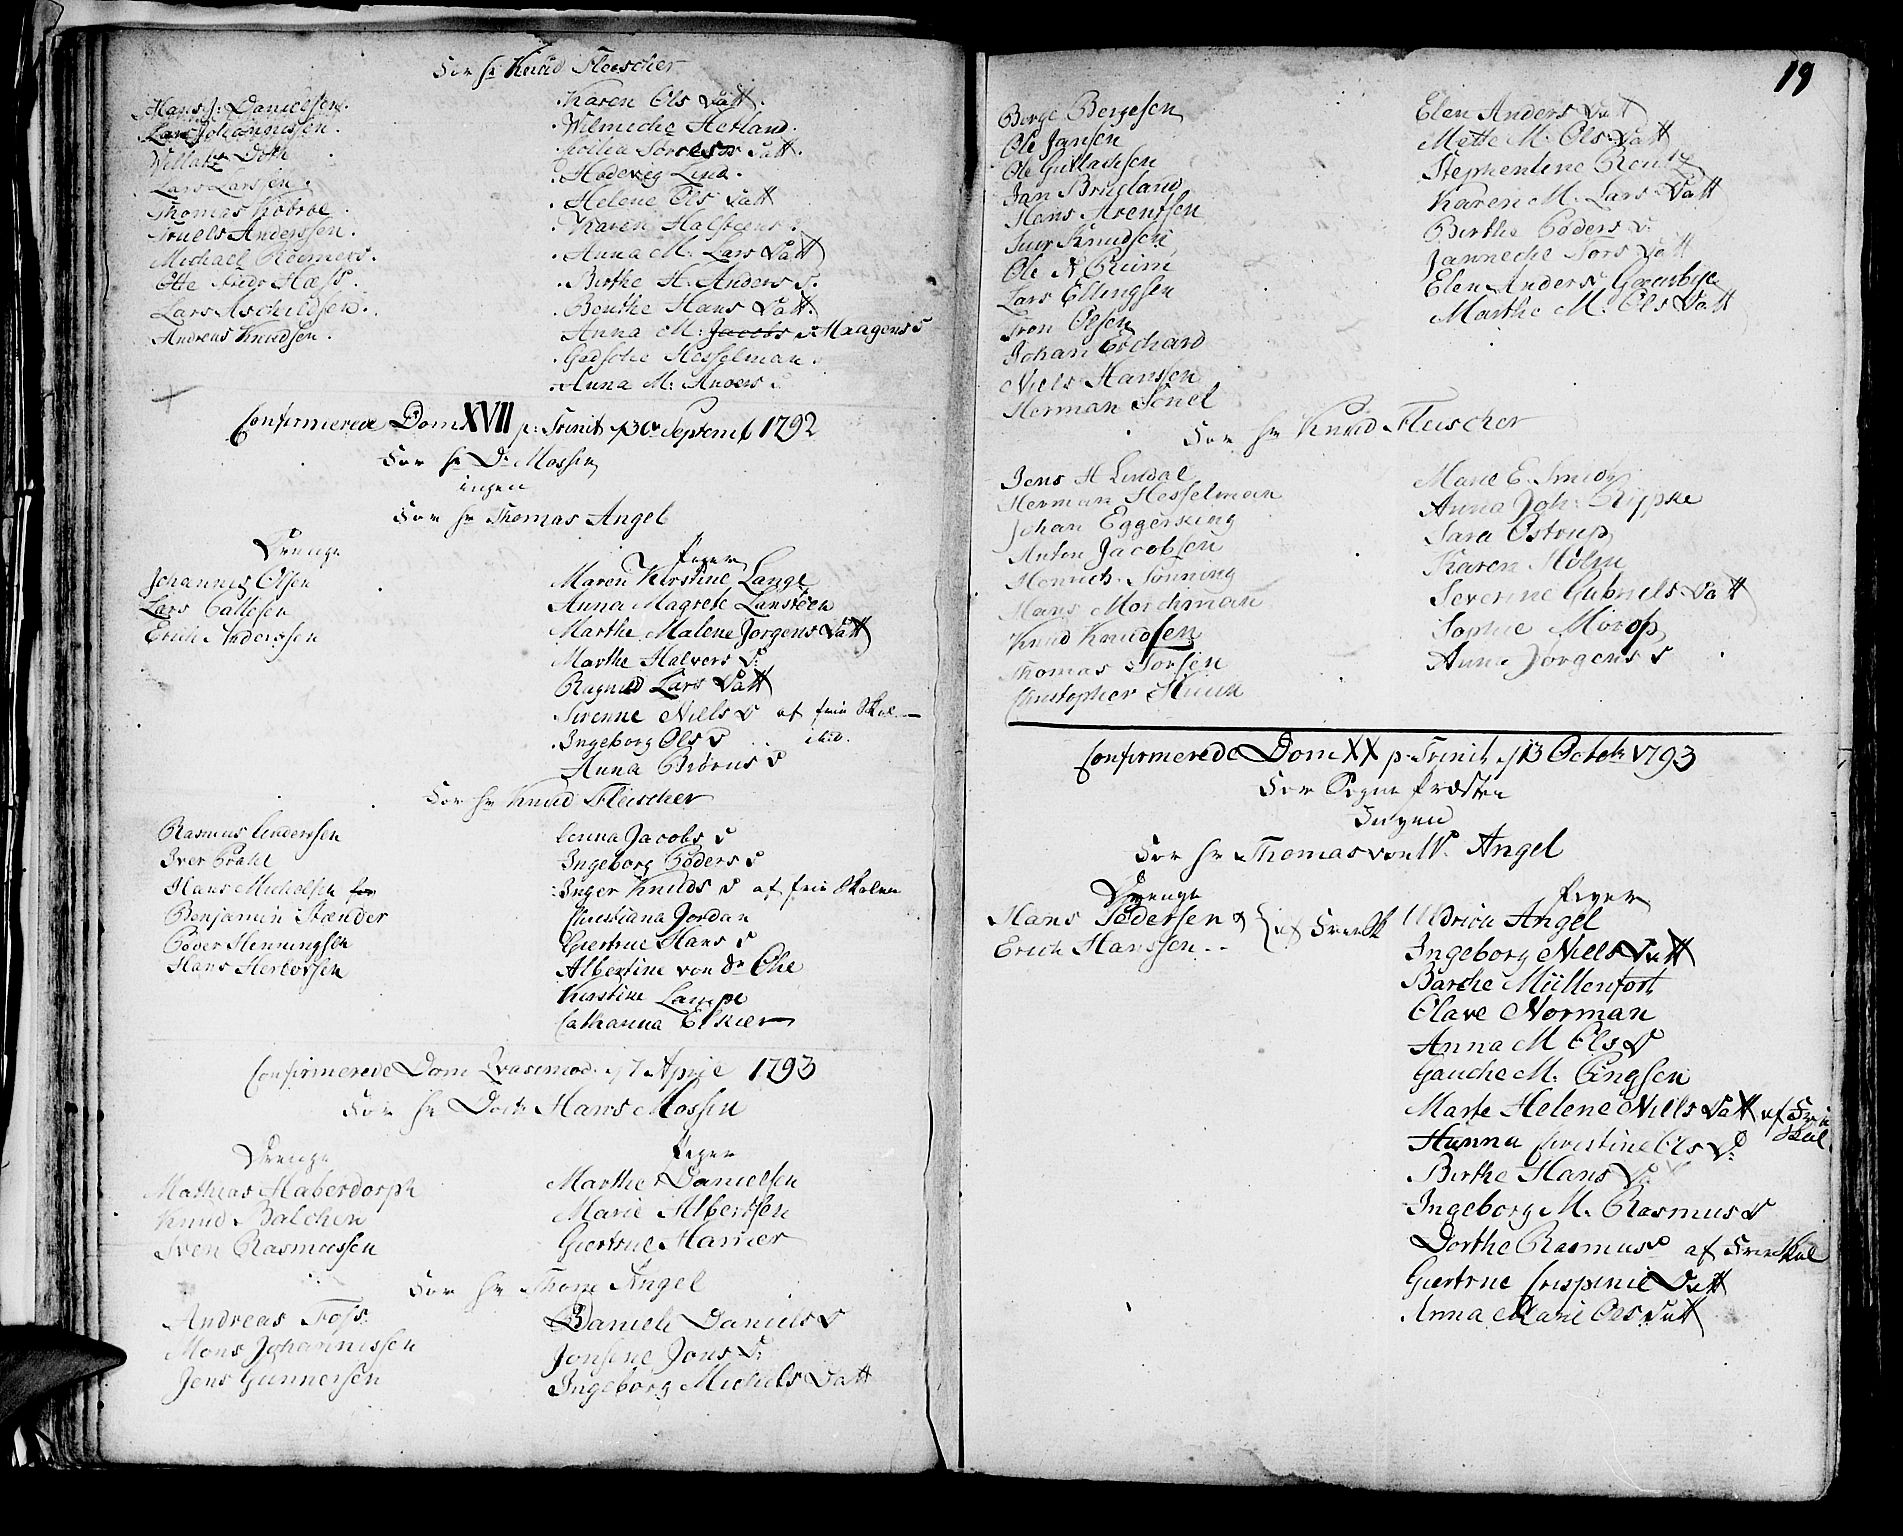 For Hr Knud Fleischer
Hans J: Danielsen.
Lars Johannissen.
Willatz Doth
Lars Larssen.
Thomas Kobroe.
Truels Anderssen.
Michael Roemers.
Otte Fridr Hæss.
Lars Aschildsen.
Andreas Knudsen.
Karen Ols Datt.
Wilmeche Hetland.
Sørens Datt.
Hedeveg Lind.
Helene Ols Datt
Karen Halsteens
Anna M: Lars Datt
Birthe H. Anders D.
Benthe Hans Datt.
Anna M: Jacobs D Maagens D
Gedsche Hesselman.
Anna M: Anders D
Confirmerede Dom XVII p: Trinit d 30 Septemb 1792
For Hr Dr Mossin
ingen
For Hr Thomas Angel
Drenge
Johannes Olsen
Lars Callesen
Erich Anderssen
Piger
Maren Kirstine Lange
Anna Magrete Lansteen
Marthe Malene Jorgens Datt
Marthe Halvers D:
Ragnild Lars Datt
Sirenne Niels D af frie Skol
Ingeborg Ols D ibid.
Anna Biørns D
For Hr Knud Fleischer
Rasmus Anderssen
Iver Prahl
Hans Michelsen
Benjamin Stænder
Peder Henningsen
Hans Herlofsen
Anna Jacobs D
Ingeborg Peders D
Inger Knuds D af frie Skolen
Christiana Jordan
Giertrue Hans D
Albertine von dr Ohe
Kirstine Lampe
Catharina Elkier
Confirmerede Dom Qvasimod. d 7 April 1793
For Hr Doct Hans Mossin
Drenge
Mathias Haberdorph
Knud Balchen
Sven Rasmussen
Piger
Marthe Danielsen
Marie Albertsen
Giertrue Harrier
For Hr Thom Angel
Andreas Foss.
Mons Johannissen
Jens Gunnersen
Daniele Daniels D
Jonsine Jons D:
Ingeborg Michels Datt
19
Berge Bergesen
Ole Jansen
Ole Gullachsen
Jan Brigland
Hans Arentsen
Siur Knudsen
Ole N Reim
Lars Ellingsen
Iron Olsen
Johan Erchard
Niels Hanssen
Herman Sonel
Elen Anders Datt
Mette M: Ols Datt
Stephentine Reutz
Karen M: Lars Datt
Birthe Peders D:
Janneche Tors Datt
Elen Anders Gaarbye
Marthe M. Ols Datt
For Hr Knud Fleischer
Jens H Lindal
Herman Hesselman
Johan Eggerking
Anton Jacobsen
Henrich Sonning
Hans Morchman
Knud Knudsen
Thomas Torsen
Christopher Huun
Marie E. Smidt
Anna Joh: Rypke
Sara Ostrup
Karen Holm
Severine Gabriels Datt
Sophie Morop
Anna Jorgens D
Confirmerede Dom XX p: Trinit d 13 Octobr 1793
For Sogne Præsten
Ingen
For Hr Thomas von W. Angel
Drenge
Hans Pedersen &
Erich Hanssen } af Frie Sk
Piger
Uldrica Angel
Ingeborg Niels Datt
Barthe Müllenfort
Olave Norman
Anna M Ols D
Gauche M: Pingsen
Marte Helene Niels Datt af Frie Skol
Hanna Christine Ols D:
Birthe Hans D:
Ingeborg M. Rasmus D
Dorthe Rasmus D af Frie Skol
Giertrue Crispinie Datt
Anna Marie Ols Datt